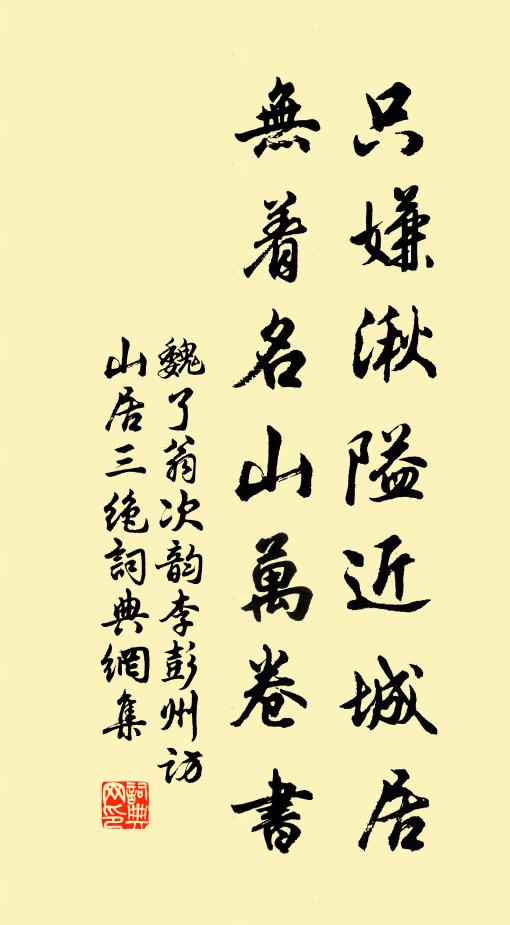 只嫌湫隘近城居
無着名山萬卷書
魏了翁次韵李彭州访
山居三绝詞典網集
詞典
网印